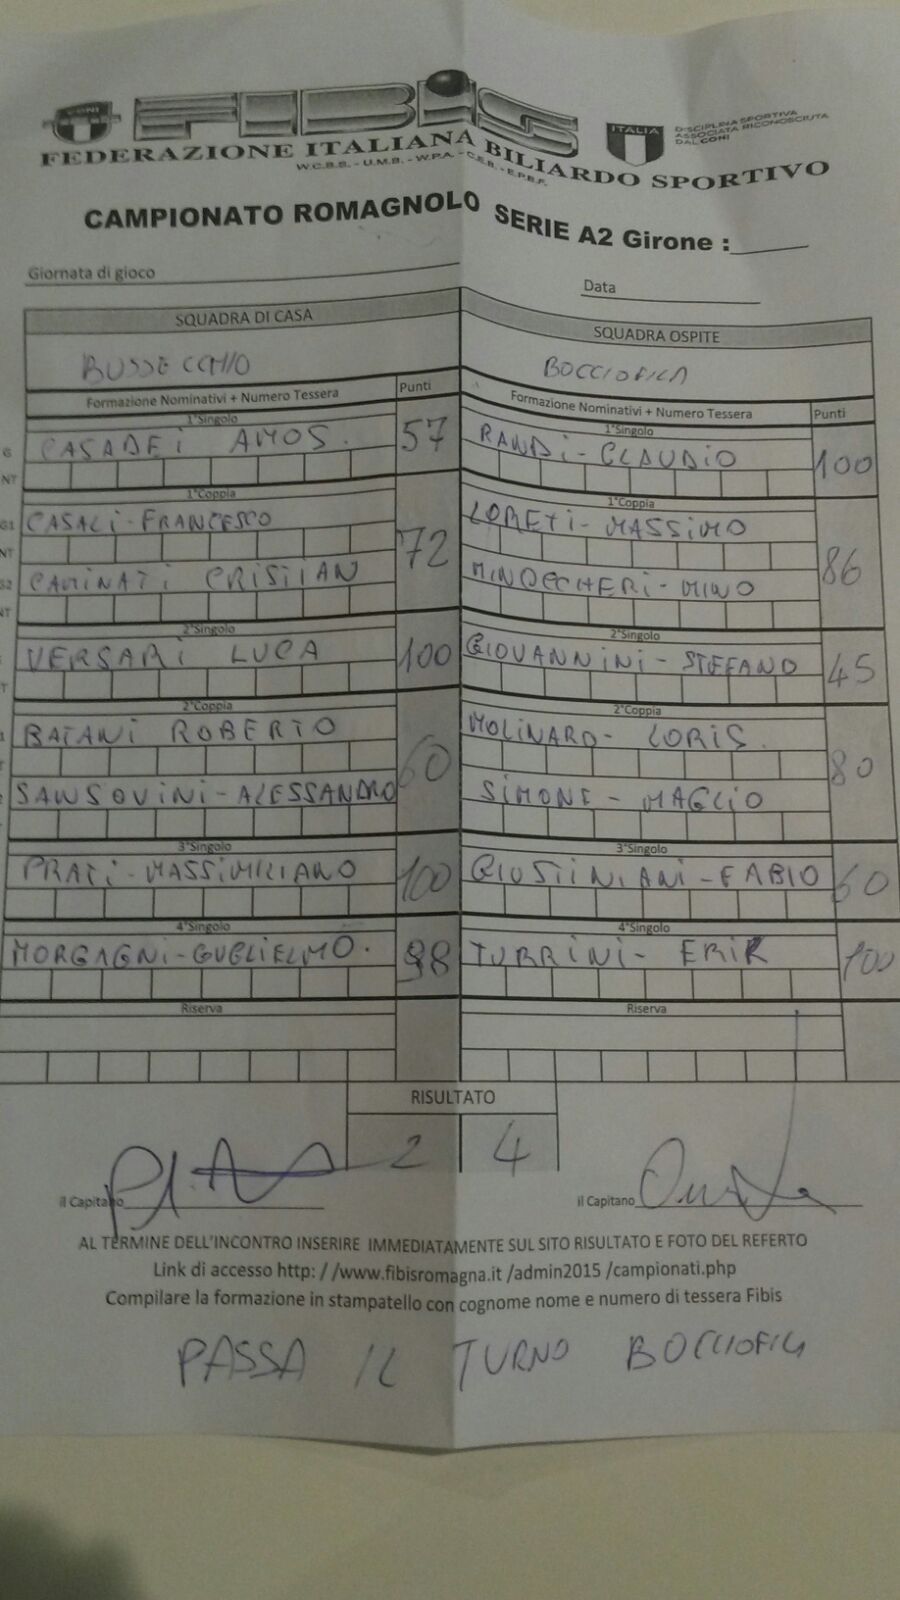 FIBiS
CONI
ITALIA
DISCIPLINA SPORTIVA
ASSOCIATA RICONOSCIUTA
DAL CONI
FEDERAZIONE ITALIANA BILIARDO SPORTIVO
W.C.B.S. - U.M.B. - W.P.A. - C.E.B. - E.P.B.F.
CAMPIONATO ROMAGNOLO SERIE A2 Girone :
Giornata di gioco
Data
SQUADRA DI CASA
SQUADRA OSPITE
BUSSECCHIO
BOCCIOFILA
Formazione Nominativi + Numero Tessera Punti
Formazione Nominativi + Numero Tessera Punti
1°Singolo
1°Singolo
CASADEi AMOS. 57
RANDi-CLAUDIO 100
NT
1°Coppia
1°Coppia
G1 CASALi-FRANCESCO
LORETi-MASSiMO
NT
72
86
G2 CAMINATi CRISTIAN
MINOCCHERi-MINO
NT
2°Singolo
2°Singolo
VERSARi LUCA 100
GIOVANNiNi-STEFANO 45
2°Coppia
2°Coppia
BATANi ROBERTO
MOLiNARO-LORIS.
60
80
SANSOViNi-ALESSANDRO
SiMONE-MAGLIO
3°Singolo
3°Singolo
PRATi-MASSiMILIANO 100
GIUSTINIANi-FABIO 60
4°Singolo
4°Singolo
MORGAGNi-GUGLIELMO. 98
TURRiNi-ERIK 100
Riserva
Riserva
RISULTATO
2 4
il Capitano
il Capitano
AL TERMINE DELL'INCONTRO INSERIRE IMMEDIATAMENTE SUL SITO RISULTATO E FOTO DEL REFERTO
Link di accesso http: / /www.fibisromagna.it /admin2015 /campionati.php
Compilare la formazione in stampatello con cognome nome e numero di tessera Fibis
PASSA IL TURNO